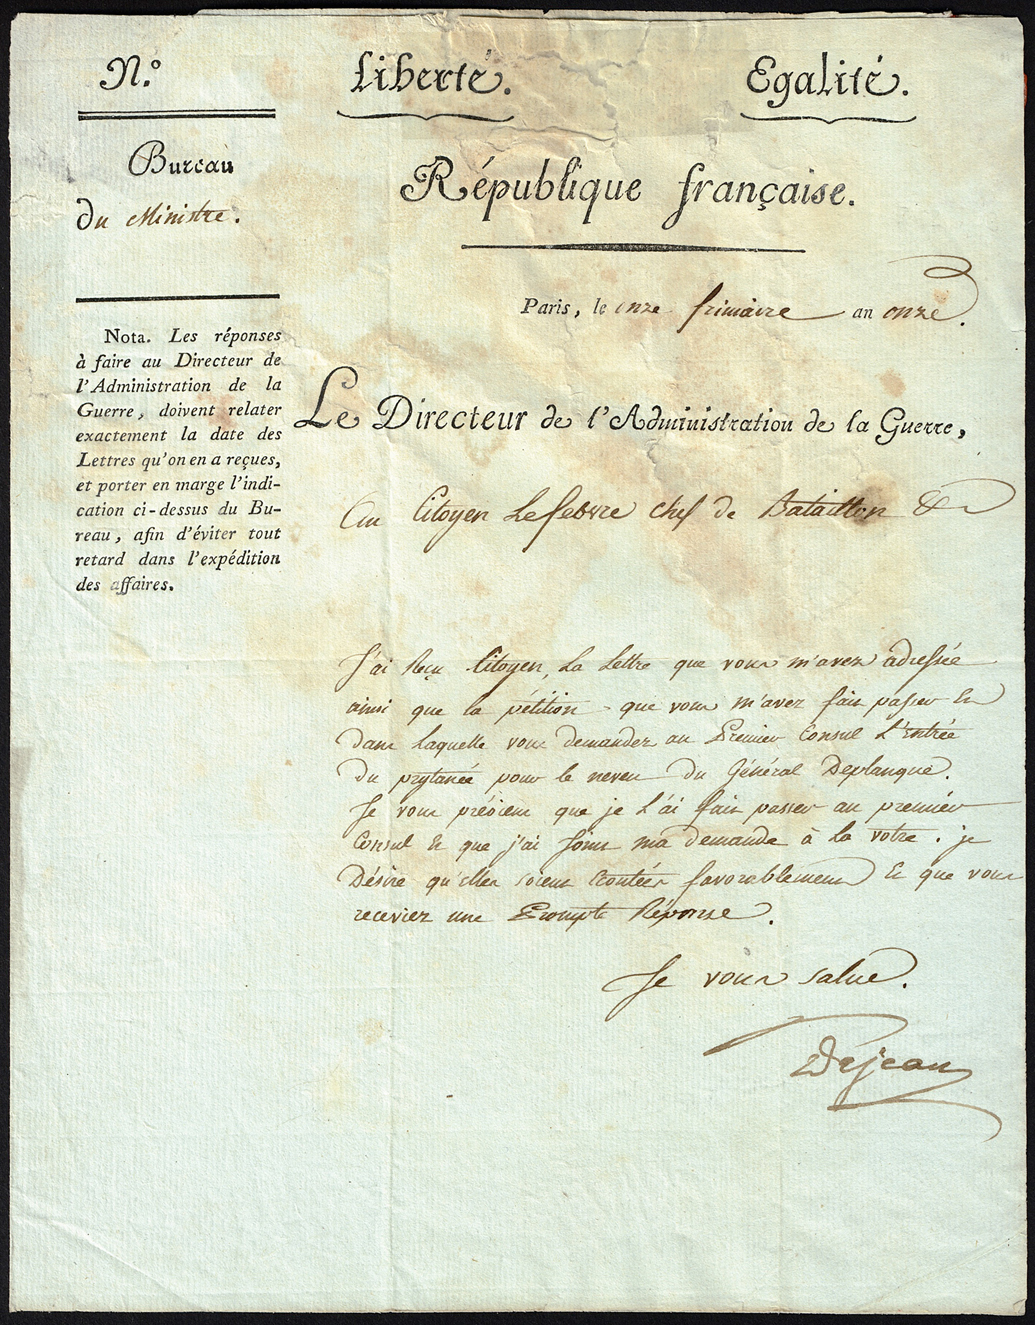 N.º
Liberté.
Egalité.
Bureau
du Ministre.
République française.
Paris, le onze frimaire an onze.
Nota. Les réponses
à faire au Directeur de
l'Administration de la
Guerre, doivent relater
exactement la date des
Lettres qu'on en a reçues,
et porter en marge l'indi-
cation ci-dessus du Bu-
reau, afin d'éviter tout
retard dans l'expédition
des affaires.
Le Directeur de l'Administration de la Guerre,
Au Citoyen Lefebvre chef de Bataillon &
J'ai Reçu Citoyen, La Lettre que vous m'avez adressée
ainsi que la pétition que vous m'avez fait passer Et
dans Laquelle vous demandez au Premier Consul L'Entrée
du prytanée pour le neveu du Général Deplanque.
Je vous préviens que je L'ai fait passer au premier
Consul Et que j'ai joint ma demande à la votre. je
Désire qu'elles soient Ecoutées favorablement Et que vous
receviez une Prompte Réponse.
Je vous salue.
Dejean